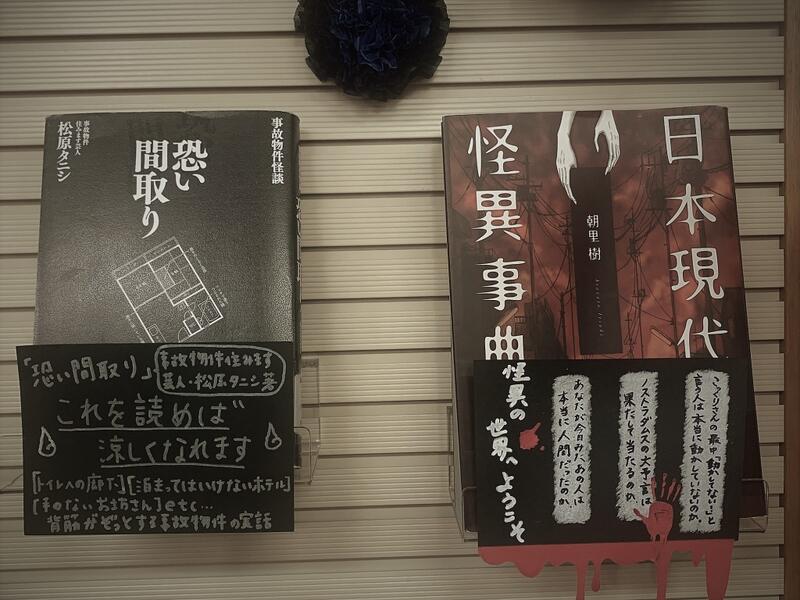 事故物件怪談
恐い
間取り
事故物件
住みます芸人
松原タニシ
「恐い間取り」
事故物件住みます
芸人・松原タニシ著
これを読めば
涼しくなれます
[トイレへの廊下][泊まってはいけないホテル]
[手のないお坊さん]etc…
背筋がぞっとする事故物件の実話
日本現代
怪異事典
朝里樹
こっくりさんの最中「動かしてない!」と
言う人は本当に動かしていないのか。
ノストラダムスの大予言は
果たして当たるのか。
あなたが今日みたあの人は
本当に人間だったのか。
怪異の
世界へようこそ